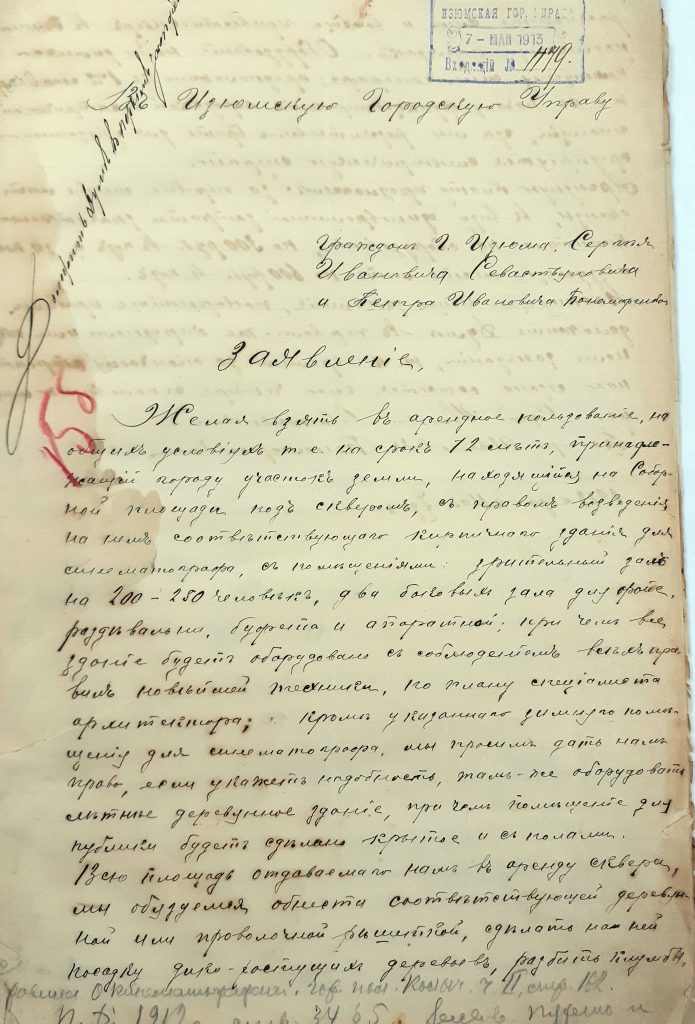 ИЗЮМСКАЯ ГОР. УПРАВА
7 - МАЙ 1913
Входящій №
Въ Изюмскую Городскую Управу
Граждан Г. Изюма, Сергѣя
Ивановича Севастьяновича
и Петра Ивановича Пономаренко
Заявленіе,
155
Желая взять въ арендное пользованіе, на
общихъ условіяхъ т. е. на срокъ 12 лѣтъ, принадле-
жащій городу участокъ земли, находящійся на Собор-
ной площади подъ скверомъ, съ правомъ возведенія
на немъ соотвѣтствующаго кирпичнаго зданія для
синематографа, съ помѣщеніями: зрительный залъ
на 200 – 250 человѣкъ, два боковых зала для фойе,
раздѣвальни, буфета и апаратной; при чемъ все
зданіе будетъ оборудовано съ соблюденіемъ всѣхъ пра-
вилъ новѣйшей техники, по плану спеціалиста
архитектора; кромѣ указаннаго зимняго помѣ-
щенія для синематографа, мы просимъ дать намъ
право, если укажетъ надобность, тамъ-же оборудовать
лѣтнее деревянное зданіе, при чемъ помѣщеніе для
публики будетъ сдѣлано крытое и съ полами.
Всю площадь отдаваемаго намъ въ аренду сквера,
мы обязуемся обнести соотвѣтствующей деревян-
ной или проволочной рѣшеткой, сдѣлать на ней
посадку дико-ростущихъ деревьевъ, разбить клумбы,
ч. II, стр. 162